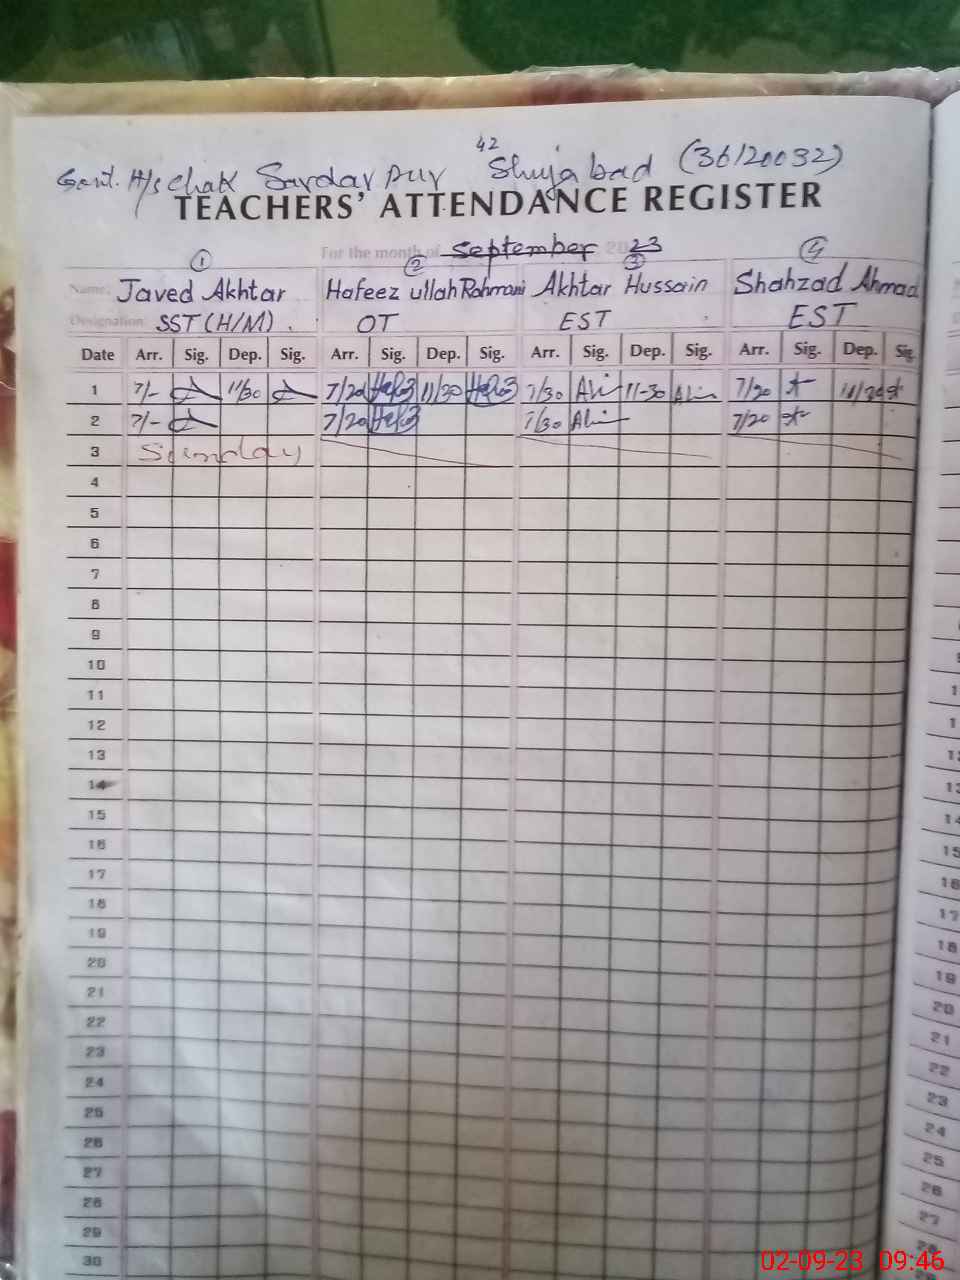 42
Govt. H/S Chak Sardar pur Shujabad (36120032)
TEACHERS' ATTENDANCE REGISTER
For the month of September 2023
① ② ③ ④
Name: Javed Akhtar Hafeez ullah Rahmani Akhtar Hussain Shahzad Ahmad
Designation: SST (H/M). OT EST EST
Date Arr. Sig. Dep. Sig. Arr. Sig. Dep. Sig. Arr. Sig. Dep. Sig. Arr. Sig. Dep. Sig.
1 7/- 11/30 7/20 11/30 7/30 11-30 7/20
2 7/- 7/20 7/30 7/20
3 Sunday
4
5
6
7
8
9
10
11
12
13
14
15
16
17
18
19
20
21
22
23
24
25
26
27
28
29
30
02-09-23 09:46